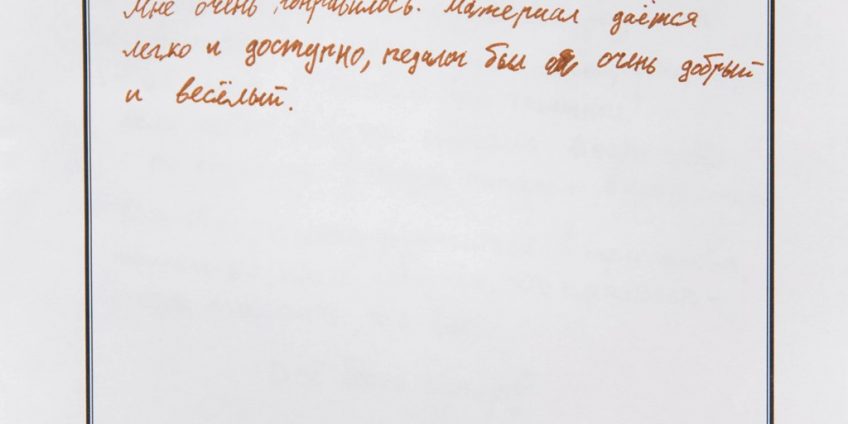 Мне очень понравилось. Материал даётся
легко и доступно, педагог был очень добрый
и весёлый.